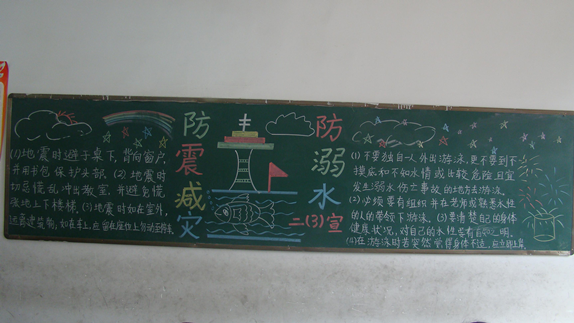 防震减灾
(1)地震时避于桌下,背向窗户,
并用书包保护头部.(2)地震时
切忌慌乱冲出教室,并避免慌
张地上下楼梯.(3)地震时如在室外,
远离建筑物,如在车上,应留在座位上勿动至停车.
防溺水
二(3)宣
(1)不要独自一人外出游泳,更不要到不
摸底和不知水情或比较危险且宜
发生溺水伤亡事故的地方去游泳.
(2)必须要有组织并在老师或熟悉水性
的人的带领下游泳.(3)要清楚自己的身体
健康状况,对自己的水性要有自知之明.
(4)在游泳时若突然觉得身体不适,